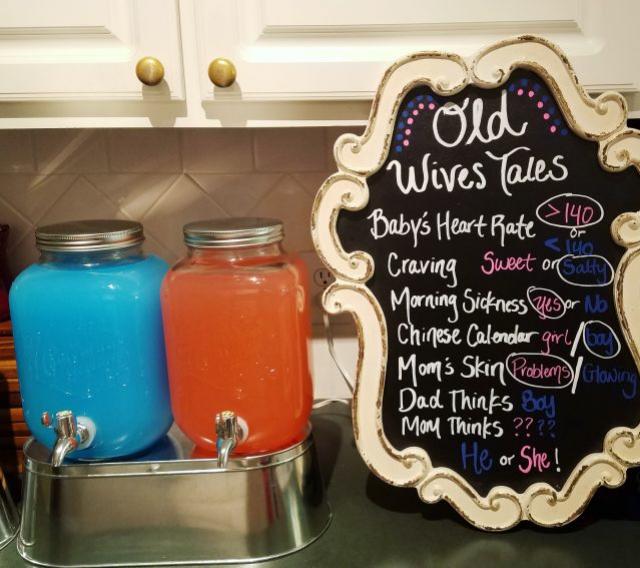 Old
Wives Tales
Baby's Heart Rate >140
or
< 140
Craving Sweet or Salty
Morning Sickness yes or No
Chinese Calendar girl/boy
Mom's Skin Problems/Glowing
Dad Thinks Boy
Mom Thinks ????
He or She!